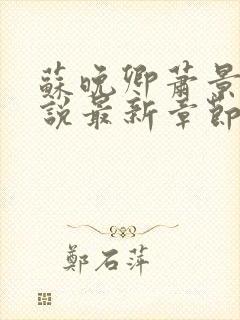 蘇晚卿蕭景
說最新章節
鄭石萍